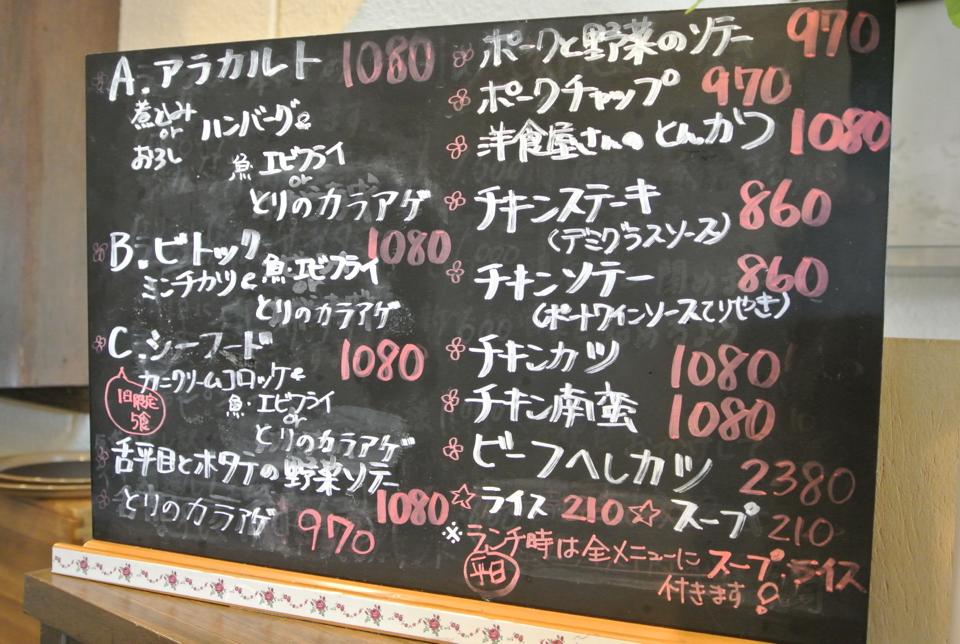 A.アラカルト 1080
煮込み
or
おろし
ハンバーグと
魚・エビフライ
or
とりのカラアゲ
B.ビトック 1080
ミンチカツと 魚・エビフライ
or
とりのカラアゲ
C.シーフード 1080
1日限定
5食
カニクリームコロッケと
魚・エビフライ
or
とりのカラアゲ
舌平目とホタテの野菜ソテー 1080
とりのカラアゲ 970
ポークと野菜のソテー 970
ポークチャップ 970
洋食屋さんの とんかつ 1080
チキンステーキ 860
(デミグラスソース)
チキンソテー 860
(ポートワインソースてりやき)
チキンカツ 1080
チキン南蛮 1080
ビーフヘレカツ 2380
☆ライス 210 ☆ スープ 210
※ランチ時は全メニューに スープ・ライス
平日 付きます!